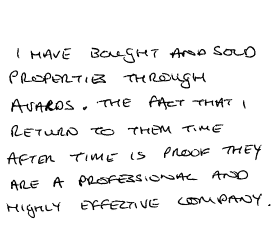 I HAVE BOUGHT AND SOLD
PROPERTIES THROUGH
AVARDS. THE FACT THAT I
RETURN TO THEM TIME
AFTER TIME IS PROOF THEY
ARE A PROFESSIONAL AND
HIGHLY EFFECTIVE COMPANY.